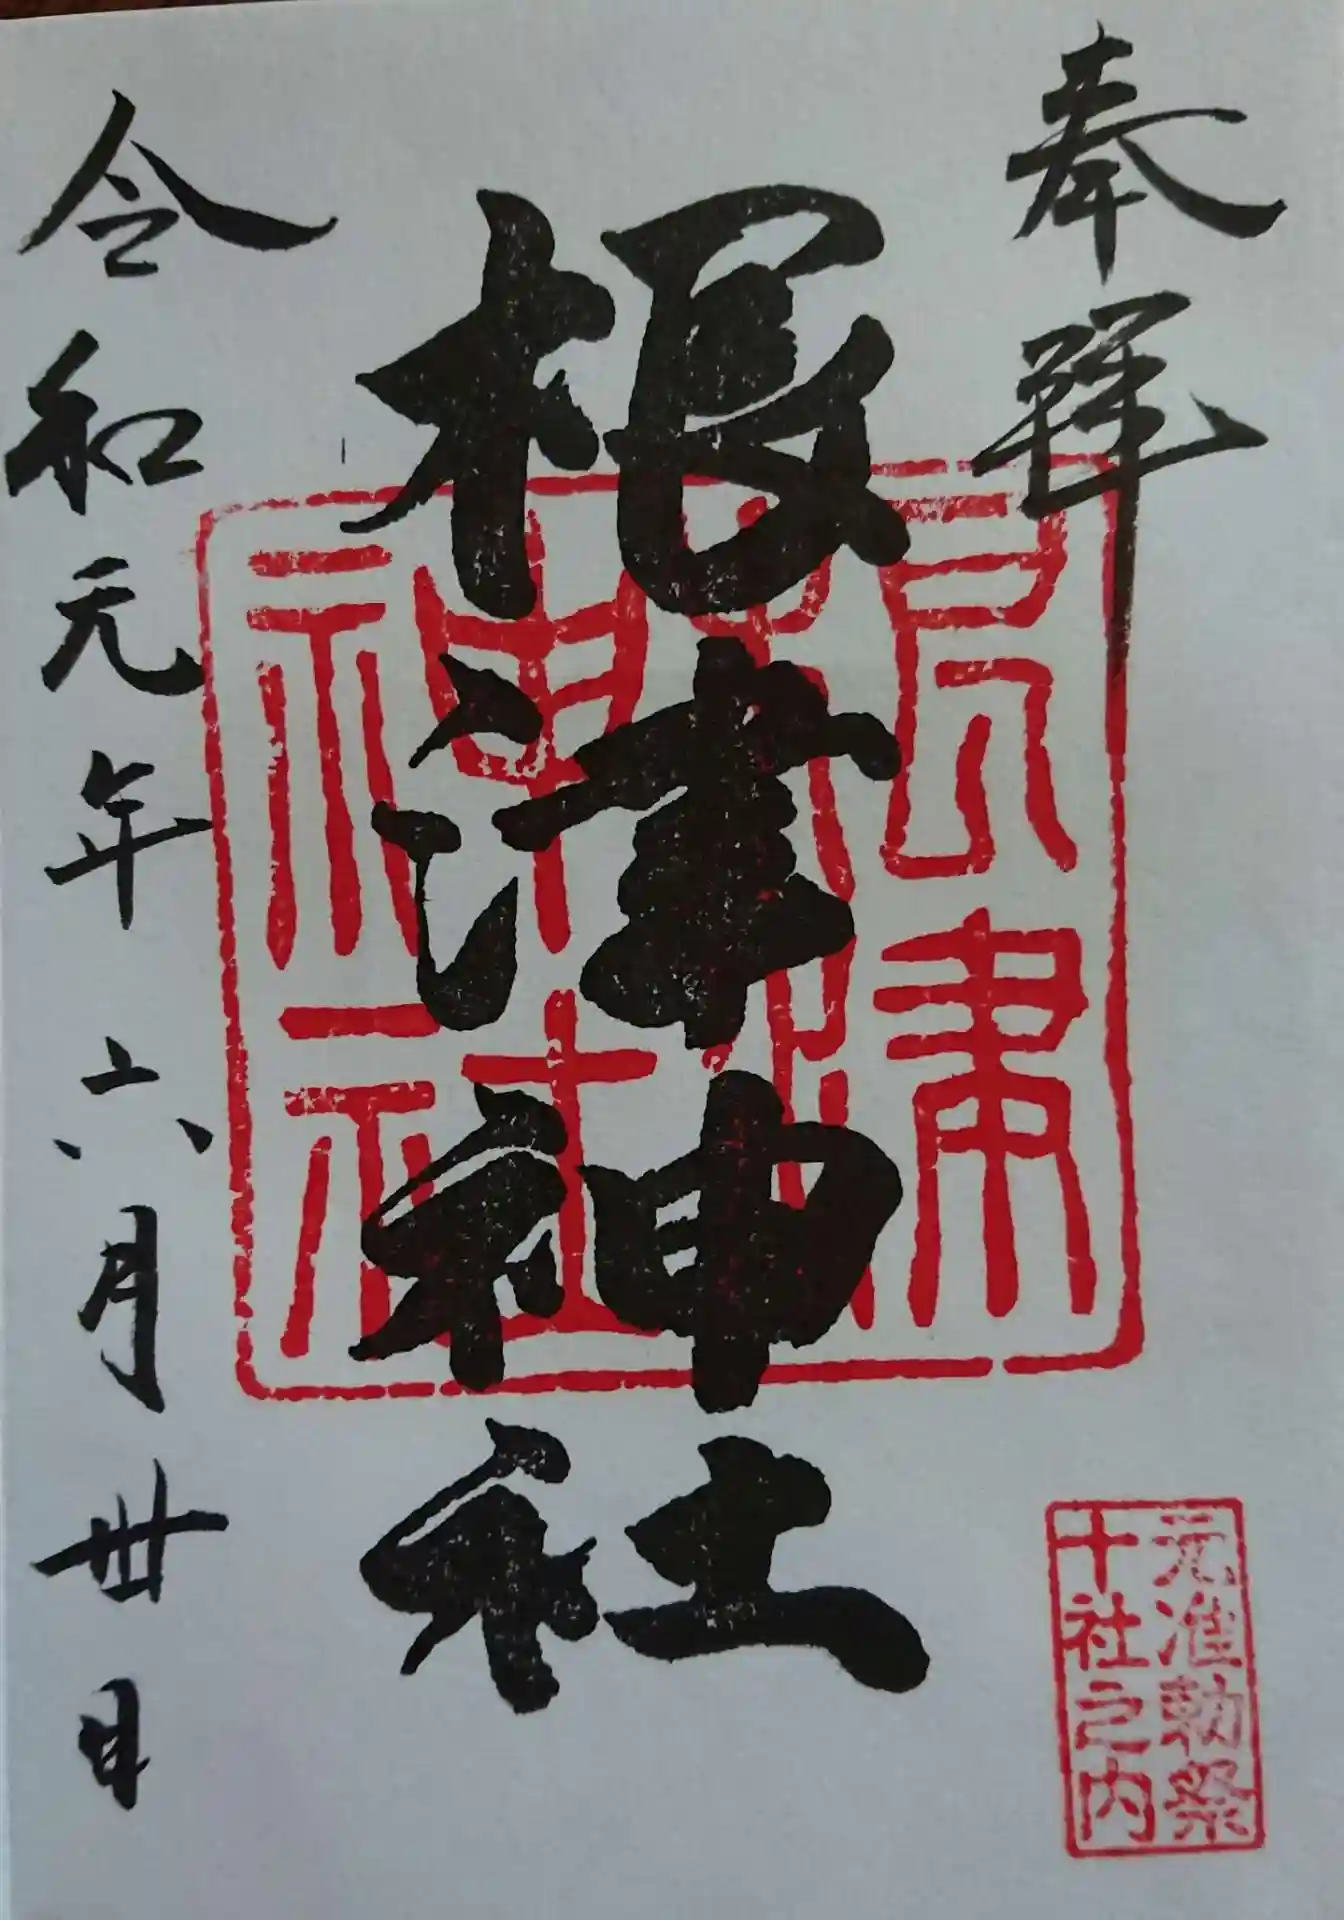 奉拝
根津神社
根津
神社
令和元年六月卅日
元准勅祭
十社之内